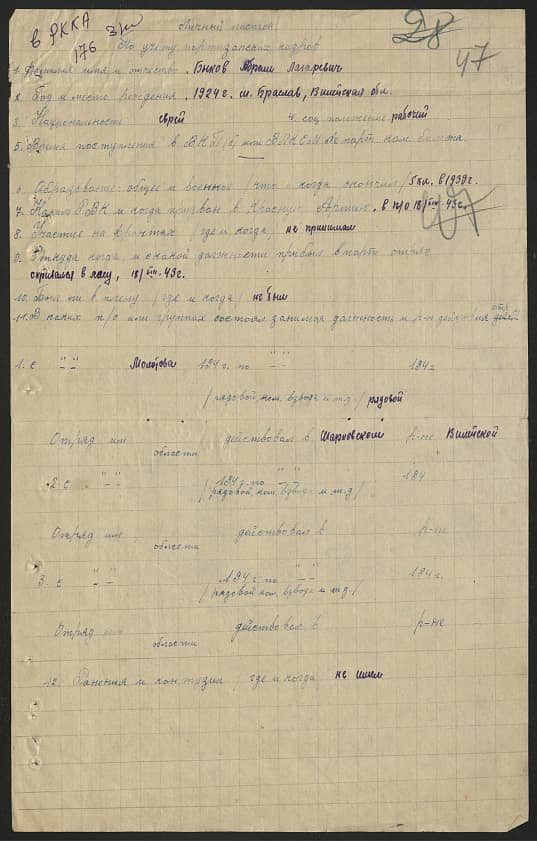 в РККА
176 з/и
28
47
Личный листок
По учету партизанских кадров
1. Фамилия имя и отчество. Быков Абрам Лазаревич
2. Год и место рождения, 1924г. м. Браслав, Вилейская обл.
3. Национальность еврей 4. соц положение рабочий
5. Время поступления в ВКП/б/ или ВЛКСМ № парт. ком. билета.
6. Образование: общее и военное /что и когда окончил/ 5 кл. в 1939г.
7. Каким РВК и когда призван в Красную Армию. в п/о 18/VIII-43г.
8. Участие на фронтах /где и когда/ не принимал
9. Откуда когда, и с какой должности прибыл в парт. отряд
скрывался в лесу, 18/VIII-43г.
10. Был ли в плену /где и когда/ не был
11. В каких п/о или группах состоял занимая должность и р-н действия
1. с " " Молотова 194 г. по " " 194 г
/рядовой, ком. взвода и т.д./ рядовой
Отряд им действовал в Шарковском р-не Вилейской
области
2 с " " 194 г. по " " 194
/рядовой, ком. взвода и т.д./
Отряд им. действовал в р-не
области
3. с " " 194 г. по " " 194 г.
/рядовой ком. взвода и т.д./
Отряд им действовал в р-не
области
12. Ранения и контузии /где и когда не имел